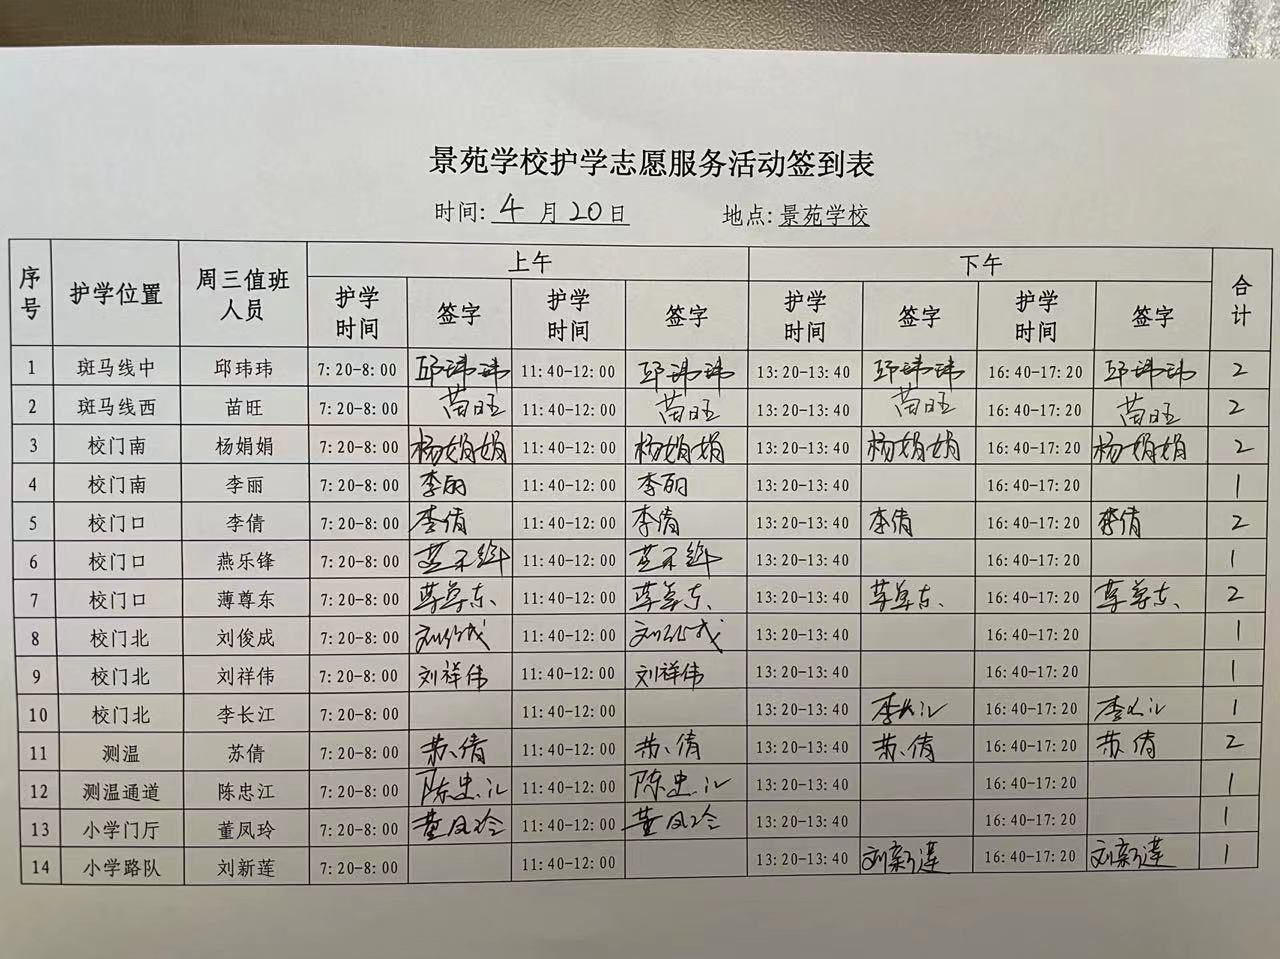 景苑学校护学志愿服务活动签到表
时间: 4 月 20 日 地点: 景苑学校
序号 护学位置 周三值班人员 上午 下午 合计
护学时间 签字 护学时间 签字 护学时间 签字 护学时间 签字
1 斑马线中 邱玮玮 7:20-8:00 邱玮玮 11:40-12:00 邱玮玮 13:20-13:40 邱玮玮 16:40-17:20 邱玮玮 2
2 斑马线西 苗旺 7:20-8:00 苗旺 11:40-12:00 苗旺 13:20-13:40 苗旺 16:40-17:20 苗旺 2
3 校门南 杨娟娟 7:20-8:00 杨娟娟 11:40-12:00 杨娟娟 13:20-13:40 杨娟娟 16:40-17:20 杨娟娟 2
4 校门南 李丽 7:20-8:00 李丽 11:40-12:00 李丽 13:20-13:40 16:40-17:20 1
5 校门口 李倩 7:20-8:00 李倩 11:40-12:00 李倩 13:20-13:40 李倩 16:40-17:20 李倩 2
6 校门口 燕乐锋 7:20-8:00 燕乐锋 11:40-12:00 燕乐锋 13:20-13:40 16:40-17:20 1
7 校门口 薄尊东 7:20-8:00 薄尊东 11:40-12:00 薄尊东 13:20-13:40 薄尊东 16:40-17:20 薄尊东 2
8 校门北 刘俊成 7:20-8:00 刘俊成 11:40-12:00 刘俊成 13:20-13:40 16:40-17:20 1
9 校门北 刘祥伟 7:20-8:00 刘祥伟 11:40-12:00 刘祥伟 13:20-13:40 16:40-17:20 1
10 校门北 李长江 7:20-8:00 11:40-12:00 13:20-13:40 李长江 16:40-17:20 李长江 1
11 测温 苏倩 7:20-8:00 苏倩 11:40-12:00 苏倩 13:20-13:40 苏倩 16:40-17:20 苏倩 2
12 测温通道 陈忠江 7:20-8:00 陈忠江 11:40-12:00 陈忠江 13:20-13:40 16:40-17:20 1
13 小学门厅 董凤玲 7:20-8:00 董凤玲 11:40-12:00 董凤玲 13:20-13:40 16:40-17:20 1
14 小学路队 刘新莲 7:20-8:00 11:40-12:00 13:20-13:40 刘新莲 16:40-17:20 刘新莲 1